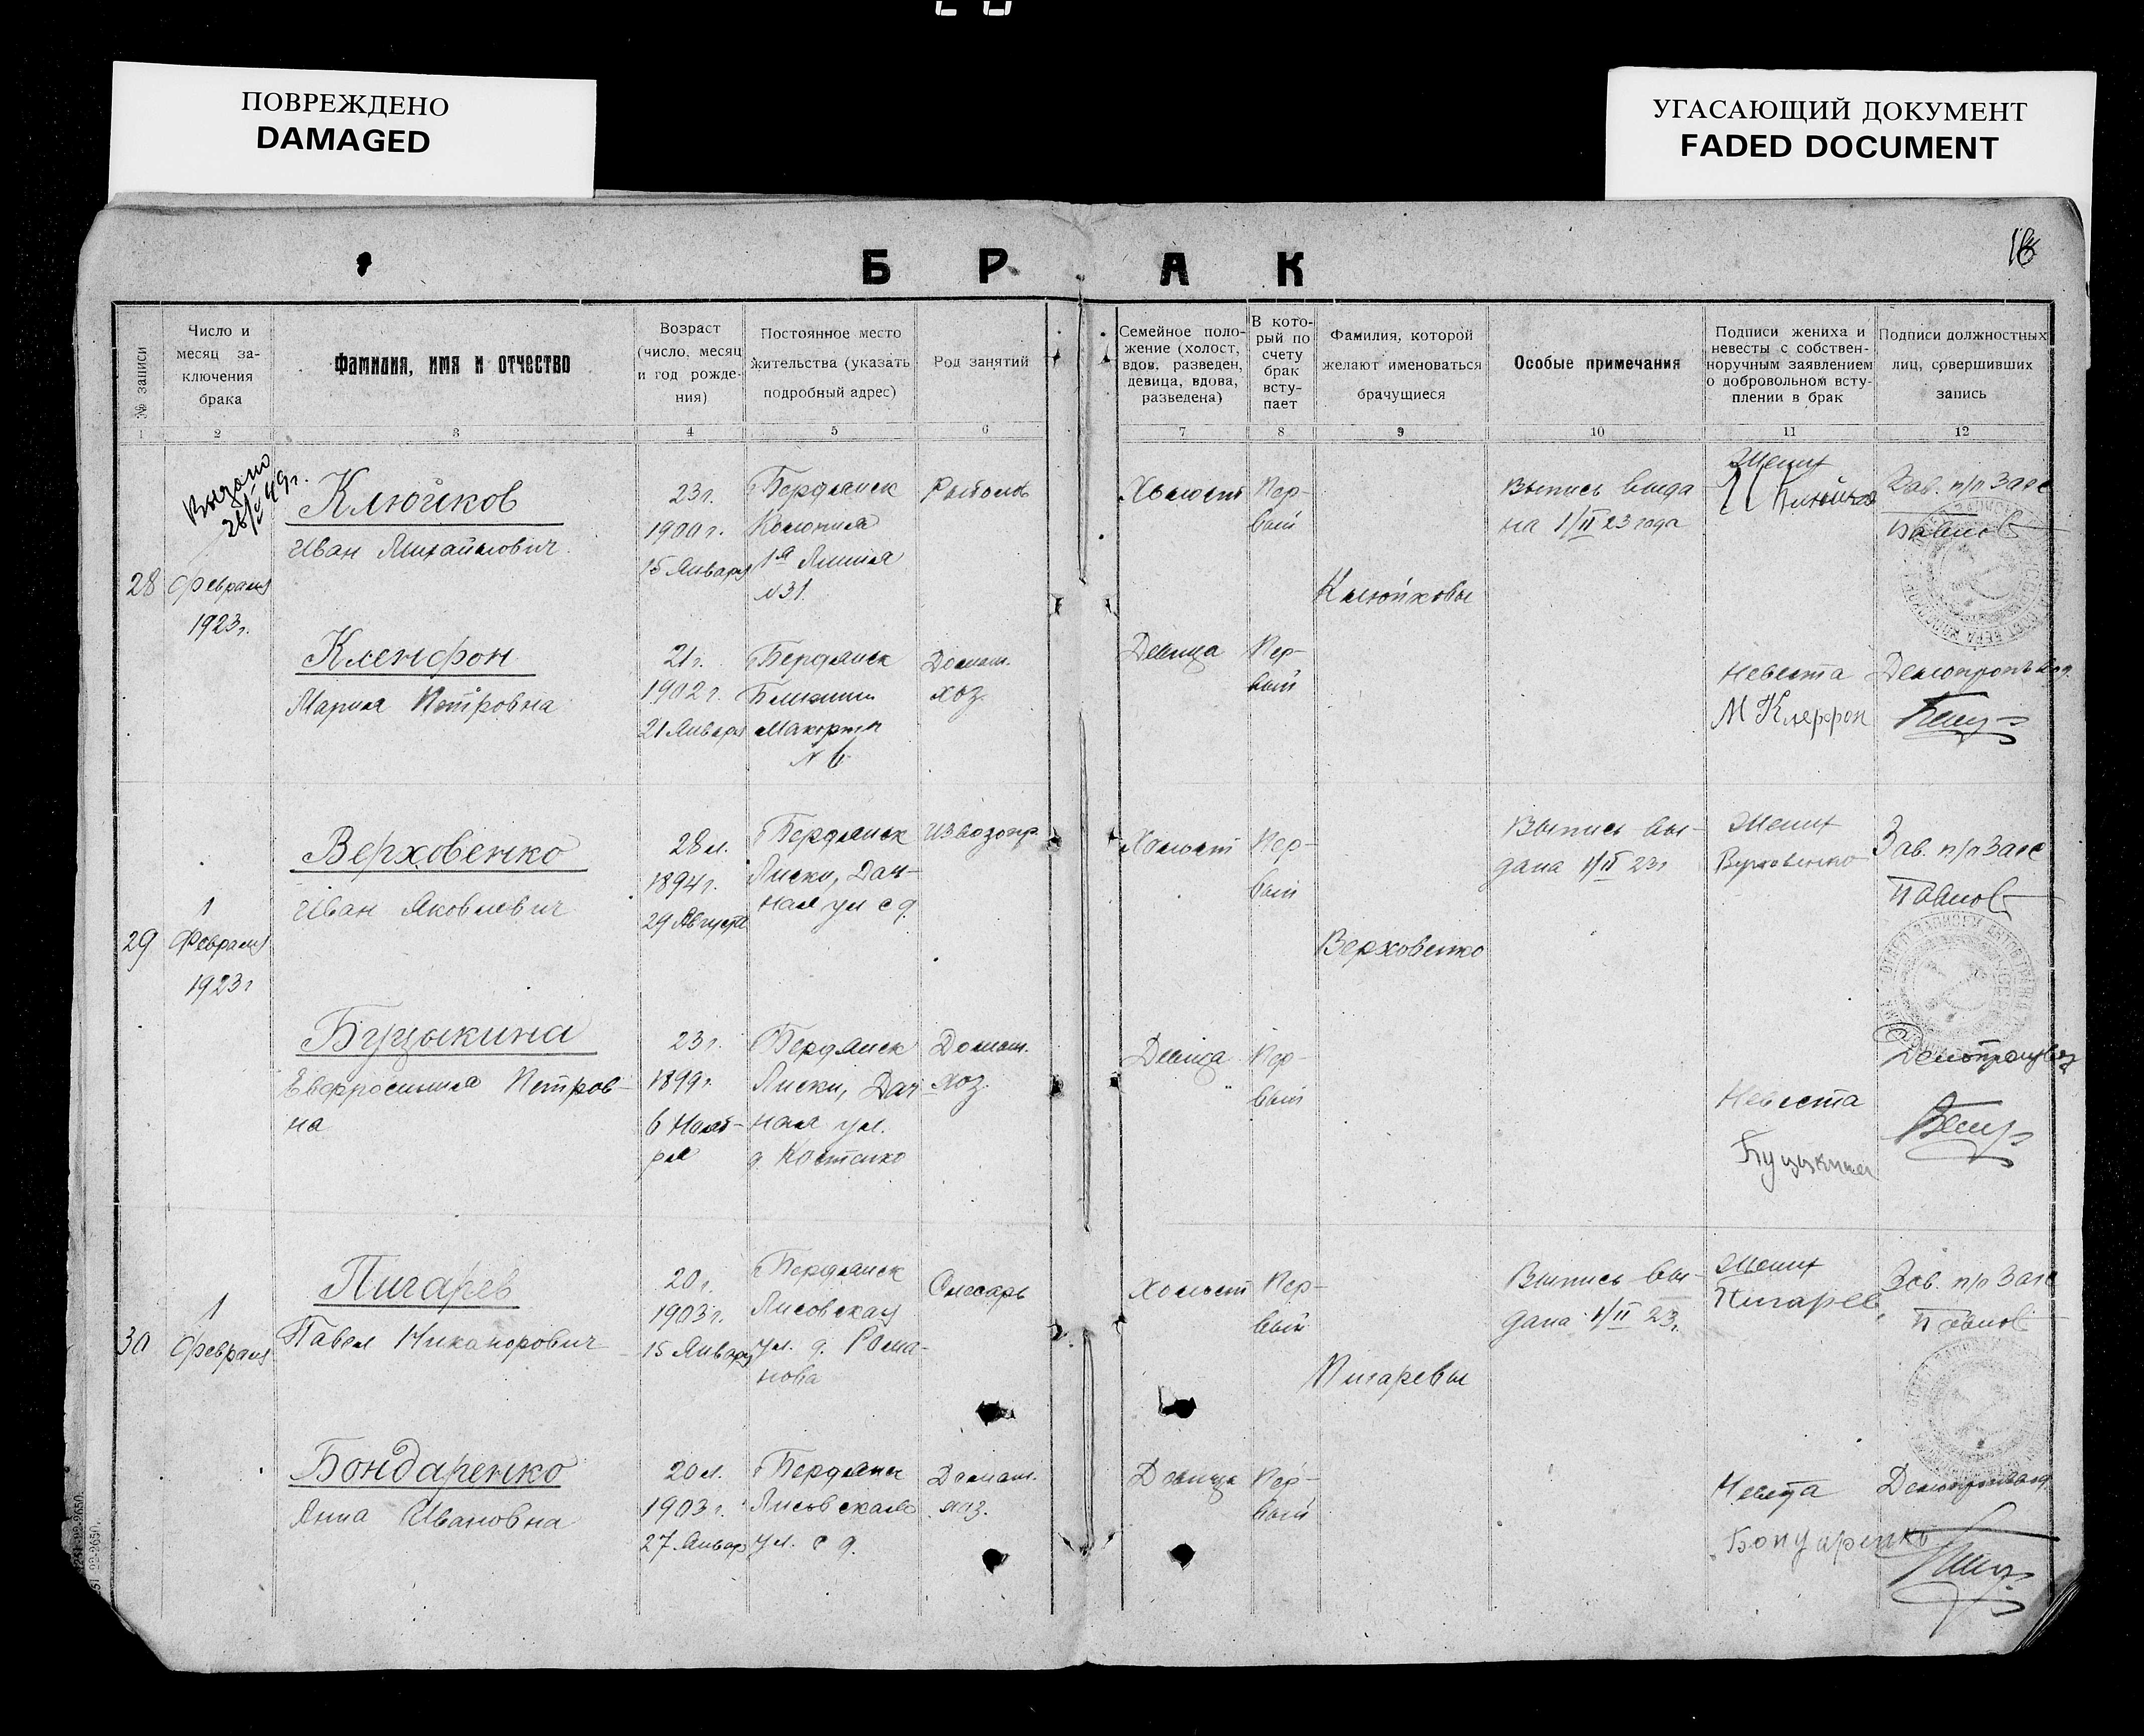 ПОВРЕЖДЕНО
DAMAGED
УГАСАЮЩИЙ ДОКУМЕНТ
FADED DOCUMENT
БРАК
№ записи
Число и
месяц за-
ключения
брака
Фамилия, имя и отчество
Возраст
(число, месяц
и год рожде-
ния)
Постоянное место
жительства (указать
подробный адрес)
Род занятий
Семейное поло-
жение (холост,
вдов. разведен,
девица, вдова,
разведена)
В кото-
рый по
счету
брак
всту-
пает
Фамилия, которой
желают именоваться
брачущиеся
Особые примечания
Подписи жениха и
невесты с собствен-
норучным заявлением
о добровольном всту-
плении в брак
Подписи должностных
лиц, совершивших
запись
1 2 3 4 5 6 7 8 9 10 11 12
28
Февраля
1923г.
Клюйков
Иван Михайлович
23г.
1900г.
15 Января
Бердянск
Колония
1я Линия
N31.
Рыболов
Холост
Пер-
вый
Клюйковы
Выпись выда
на 1/II 23 года
Жених
Зав. п/п Загс
Павлов
Кленфон
Мария Петровна
21г.
1902г.
21 Января
Бердянск
Ближние
Макорты
N 6
Домаш.
хоз.
Девица
Пер-
вый
Невеста
М Кленфон
29
1
Февраля
1923г
Верховенко
Иван Яковлевич
28л.
1894г.
29 Августа
Бердянск
Лиски, Дач-
ная ул с д.
Извозопр.
Холост
Пер-
вый
Верховенко
Выпись вы-
дана 1/II 23г
Жених
Верховенко
Зав. п/п Загс
Павлов
Буцыкина
Евфросиния Петров-
на
23г.
1899г.
6 Нояб-
ря
Бердянск
Лиски, Дач-
ная ул.
д. Костенко
Домаш.
хоз.
Девица
Пер-
вый
Невеста
Буцыкина
Делопроизвод
30
1
Февраля
Пигарев
Павел Никанорович
20г.
1903г.
15 Января
Бердянск
Лисовская
ул. д. Рома-
нова
Слесарь
Холост
Пер-
вый
Пигаревы
Выпись вы-
дана 1/II 23г.
Жених
Пигарев
Зав. п/п Загс
Павлов
Бондаренко
Анна Ивановна
20л.
1903г.
27 Январ
Бердянск
Лисовская
ул. с д.
Домаш.
хоз.
Девица
Пер-
вый
Невеста
Бондаренко
Делопроизвод.